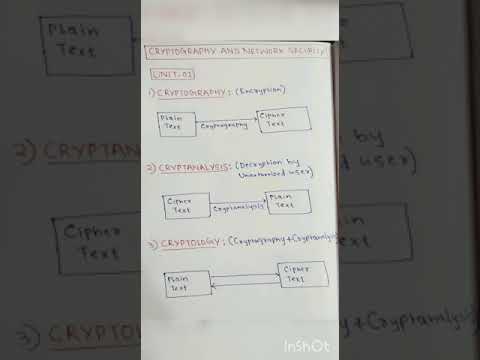 CRYPTOGRAPHY AND NETWORK SECURITY
UNIT-01
1) CRYPTOGRAPHY: (Encryption)
Plain
Text
Cryptography
Cipher
Text
2) CRYPTANALYSIS: (Decryption by
Unauthorized user)
Cipher
Text
Cryptanalysis
Plain
Text
3) CRYPTOLOGY: (Cryptography + Cryptanalysis)
Plain
Text
Cipher
Text
Plain
Text
2) CRYPTANALYSIS
Cipher
Text
3) CRYPTOLOGY
InShOt